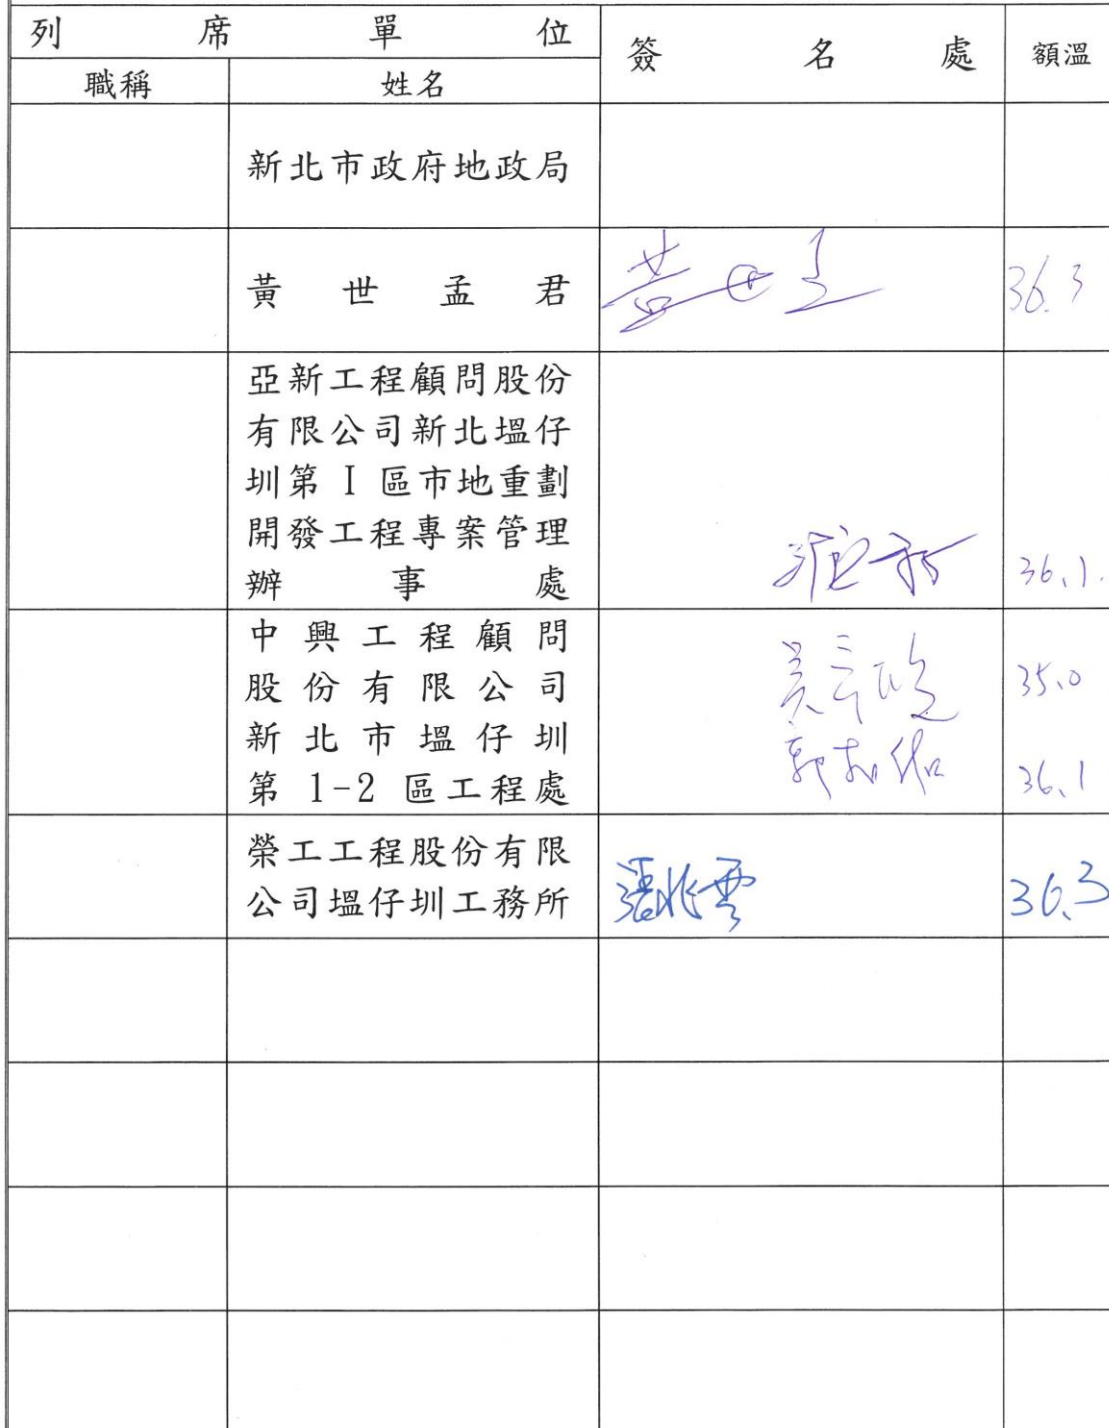 列席單位 簽名處 額溫
職稱 姓名
新北市政府地政局
黃世孟君 36.3
亞新工程顧問股份
有限公司新北塭仔
圳第 I 區市地重劃
開發工程專案管理
辦事處 36.1
中興工程顧問
股份有限公司 35.0
新北市塭仔圳
第 1-2 區工程處 36.1
榮工工程股份有限
公司塭仔圳工務所 36.3